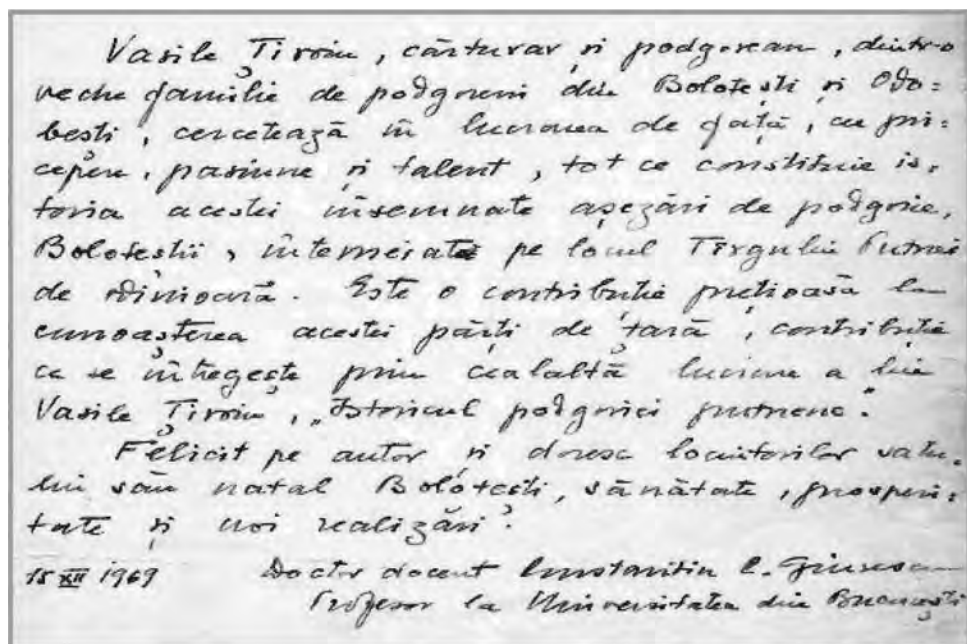 Vasile Țiroiu, cărturar și podgorean, dintr-o
veche familie de podgoreni din Bolotești și Odo=
bești, cercetează în lucrarea de față, cu pri=
cepere, pasiune și talent, tot ce constituie is=
toria acestei însemnate așezări de podgorie,
Boloteștii, întemeiată pe locul Tîrgului Putnei
de odinioară. Este o contribuție prețioasă la
cunoașterea acestei părți de țară, contribuție
ce se întregește prin cealaltă lucrare a lui
Vasile Țiroiu, „Istoricul podgoriei putnene".
Felicit pe autor și doresc locuitorilor satu=
lui său natal Bolotești, sănătate, prosperi=
tate și noi realizări.
15 XII 1969 Doctor docent Constantin C. Giurescu
Profesor la Universitatea din București